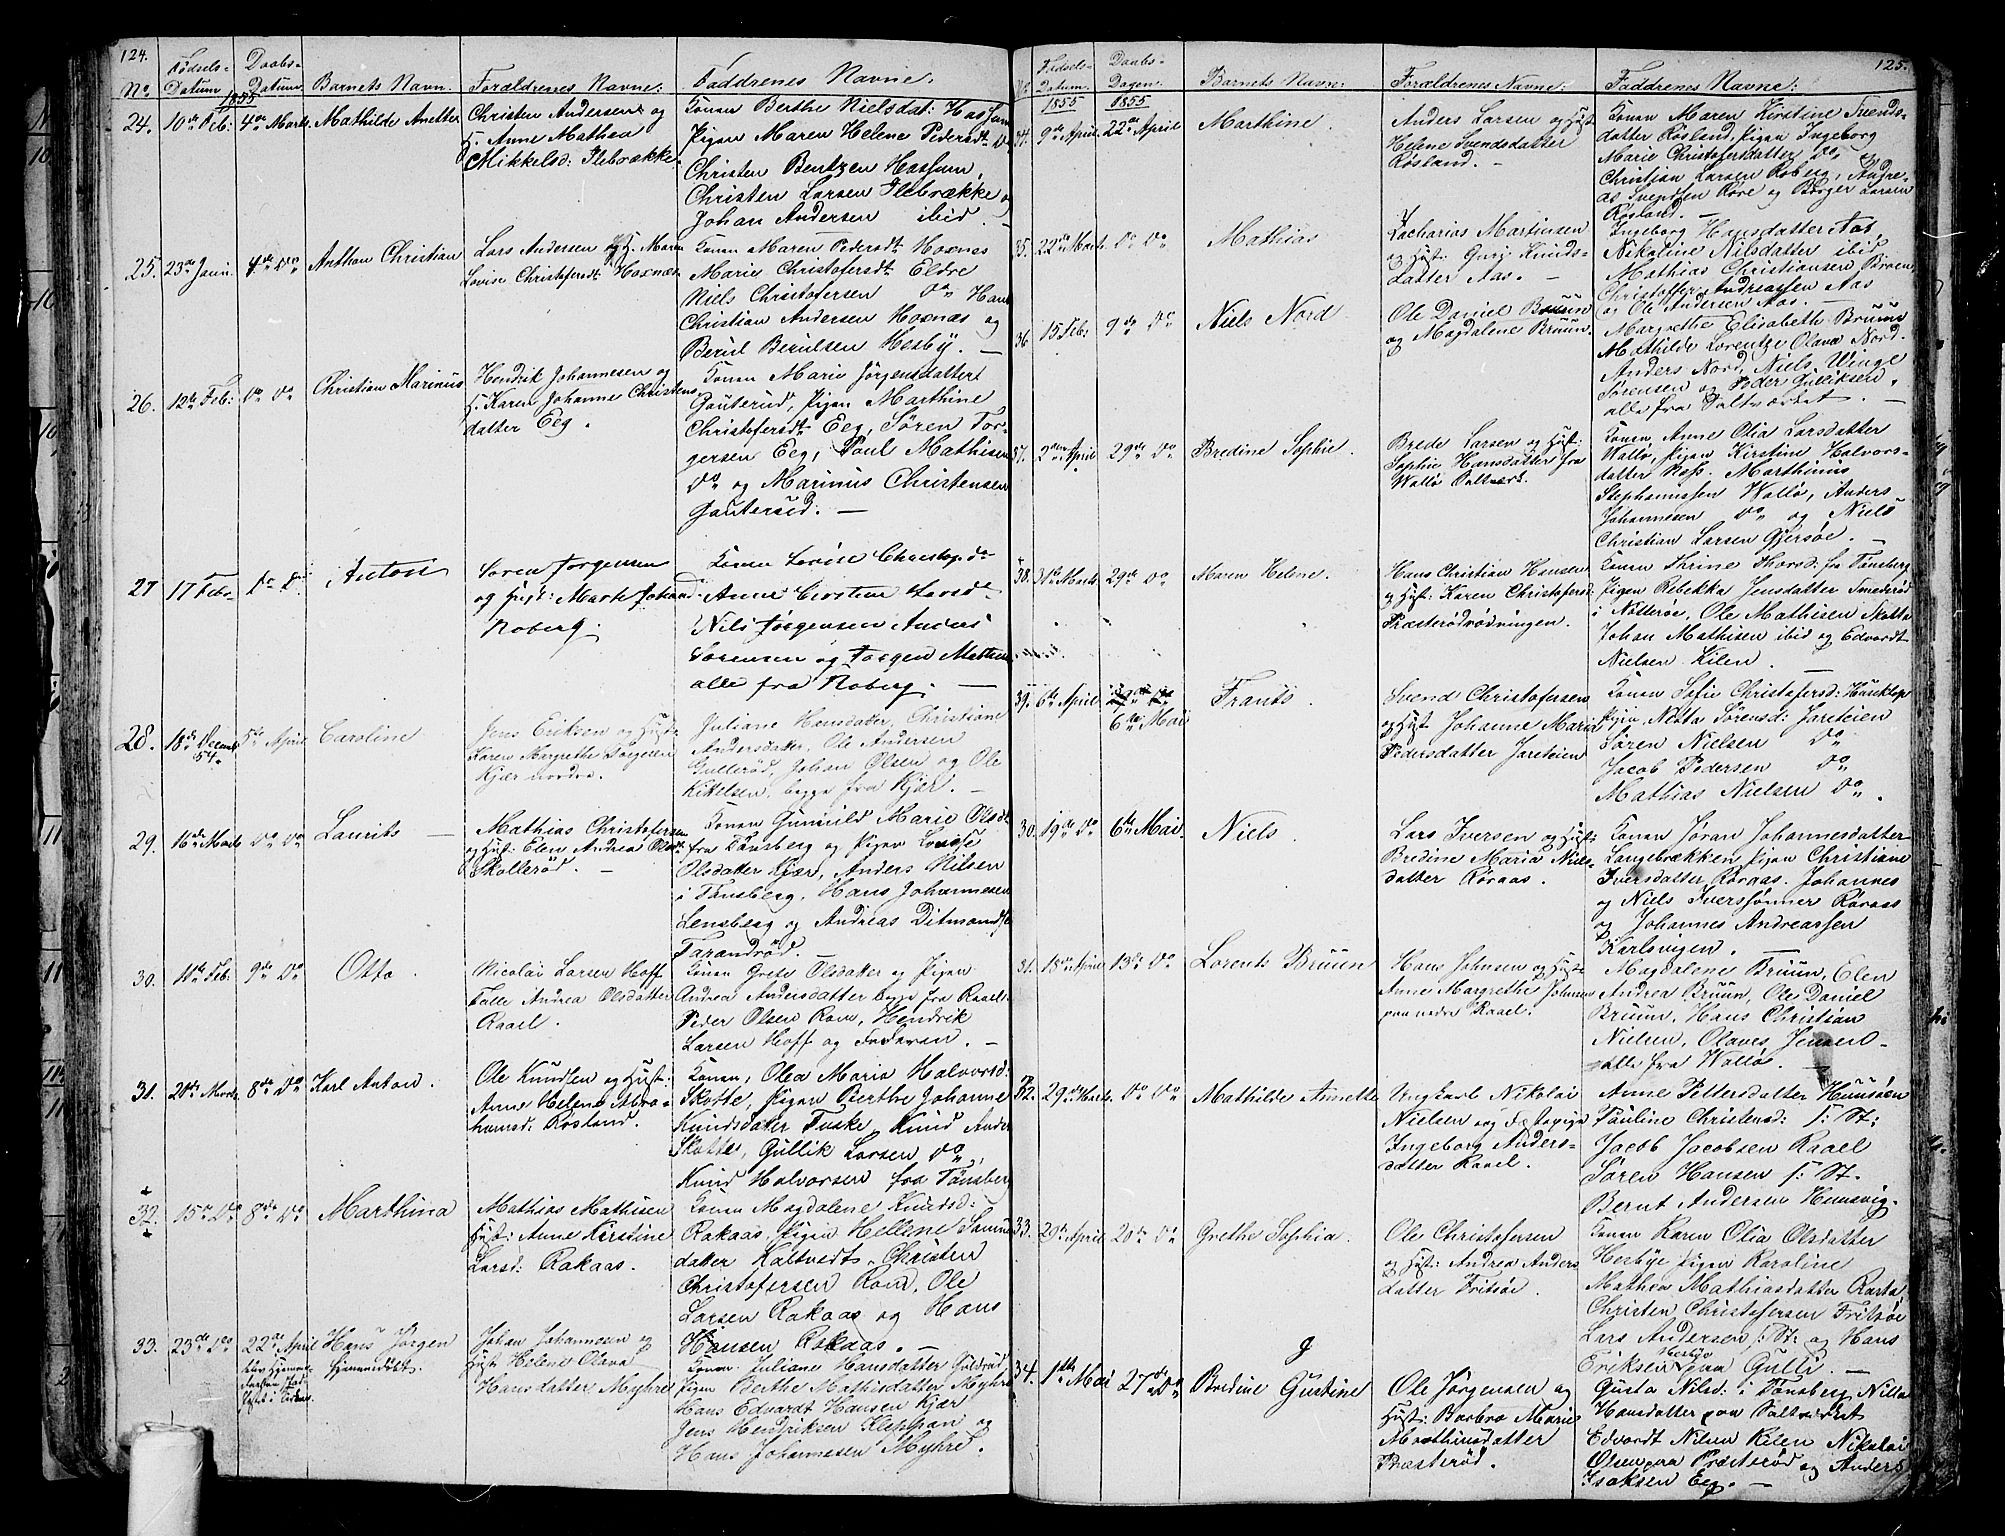 124.
No. Fødsels-Datum Daabs-Datum Barnets Navn. Forældrenes Navne: Faddrenes Navne.
1855
24. 10de Feb: 4de Marts Mathilde Anette
Christen Andersen og
H. Anne Mathea
Mikkelsd: Ilebrække.
Konen Berthe Nielsdat:
Pigen Maren Helene Pedersdt. Do
Christen Bentzen Hassum,
Christen Larsen Ilebrække og
Johan Andersen ibid.
25. 23de Janu: 4de Do Anthon Christian
Lars Andersen og H. Maren
Lovise Christofersdt. Hoxnæs
Konen Maren Pedersdt. Hoxnæs
Marie Christofersdt. Eldre
Niels Christofersen Do Hans
Christian Andersen Hoxnæs og
Berul Berulsen Hesby. —
26. 12te Feb: Do Do Christian Marinus
Hendrik Johannesen og
H. Karen Johanne Christens
datter Eeg.
Konen Marie Jørgensdatter
Gauterud, Pigen Marthine
Christofersdt. Eeg, Søren Tor-
gersen Eeg, Poul Mathisen
Do og Marinus Christensen
Gauterud. —
27 17 Febr. Do Do Anton
Søren Jørgensen
og Hust:
Roberg.
Konen Lovise
Anne Kirstine Larsd.
Nils Jørgensen Anders
Sørensen og Jørgen
alle fra Roberg. —
28. 18de Decemb 54. 5te April Caroline
Jens Eriksen og Hust
Karen Margrethe
Kjær nordre.
Juliane Hansdatter, Christiane
Andersdatter, Ole Andersen
Gullerød, Johan Olsen og Ole
Kittelsen, begge fra Kjær. —
29. 16de Marts Do Do Laurits —
Mathias Christofersen
og Hust: Elen Andrea Olsdt.
Skallerød. —
Konen Gunnild Marie Olsdt.
fra Tønsberg og Pigen Lovise
Olsdatter Kjær, Anders Nilsen
i Tønsberg, Hans Johannesen
Lensberg og Andreas
Farandrød.
30. 10de Feb: 9de Do Otto.
Nicolai Larsen Hoff
Talle Andrea Olsdatter
Raael.
Konen Grete Olsdatter og Pigen
Andrea Andersdatter begge fra Raael.
Peder Olsen Rom, Hendrik
Larsen Hoff og Faderen. —
31. 20de Marts 8de Do Karl Anton.
Ole Knudsen og Hust:
Anne Helene Abra-
hamsd: Røsland.
Konen, Olea Maria Halvorsd:
Skotte, Pigen Berthe Johanne
Knudsdatter Fuske, Knud Ander
Skotte, Gullik Larsen Do,
Knud Halvorsen fra Tønsberg
32. 15de Do 8de Do Marthina
Mathias Mathisen
Hust: Anne Kirstine
Larsd: Rakaas.
Konen Magdalene Knudsd:
Rakaas, Pigen Hellene
datter Kaltvedt, Christen
Christofersen Rom, Ole
Larsen Rakaas og Hans
Hansen Rakaas. —
33. 23de Do 22de April Hans Jørgen
hjemmedøbt.
Johan Johannesen og
Hust Helene Olava
Hansdatter Myhre
Konen Juliane Hansdatter Gulrød,
Pigen Berthe Mathisdatter Myhre
Hans Edvardt Hansen Kjær
Jens Hendriksen Kleppan og
Hans Johannesen Myhre.
125.
No Fødsels-Datum. Daabs-Dagen. Barnets Navne: Forældrenes Navne: Faddrenes Navne:
1855 1855
34. 9de April 22de April Marthine.
Anders Larsen og Hust
Helene Svendsdatter
Røsland. —
Konen Maren Kirstine Svends-
datter Røsland, Pigen Ingeborg
Marie Christofersdatter Do
Christian Larsen Roberg, Andre-
as Svendsen Røre og Børger Larsen
Røsland. —
35. 22de Marts Do Do Mathias
Zacharias Martinsen
og Hust. Knuds-
datter Aas. —
Ingeborg Hansdatter Aas,
Nikoline Nilsdatter ibid
Mathias Christiansen
Christoffer Andreassen Aas
og Ole Andersen Aas. —
36. 15 Feb: 9de Do Niels Nord
Ole Daniel Bruun
og Magdalene Bruun.
Margrethe Elisabeth Bruun
Mathilde Lorentze Olava Nord.
Anders Nord, Niels Winge
Sørensen og Peder Gulliksen,
alle fra Saltværket. —
37. 2den April 29de Do Bredine Sophie.
Brede Larsen og Hust:
Sophie Hansdatter fra
Walløe Saltværk.
Konen, Anne Olia Larsdatter
Walløe, Pigen Kirstine Halvors-
datter Marthinus
Stephannssen Walløe, Anders
Johannesen Do og Niels
Christian Larsen Gjersøe. —
38. 31te Marts 29de Do Maren Helene.
Hans Christian Hansen
og Hust: Karen Christofersd:
Præsterødrødningen.
Konen Thrine Thorsd: fra Tønsberg
Pigen Rebekka Jensdatter Smederød
i Nøtterøe, Ole Mathisen Skotte
Johan Mathisen ibid og Edvardt
Nielsen Kilen. —
39. 6te April 6te Mai Frants.
Svend Christofersen
og Hust Johanne Maria
Pedersdatter Jareteien
Konen Sofie Christofersd:
Pigen Nesta Sørensd: Jareteien
Søren Nielsen Do
Jacob Pedersen Do
Mathias Nielsen Do.
30. 19de Do 6te Mai Niels.
Lars Iversen og Hust:
Bredine Maria Niels-
datter Røraas.
Konen Jøran Johannesdatter
Langebrækken, Pigen Christiane
Iversdatter Røraas. Johannes
og Niels Iverssønner Røraas
og Johannes Andreassen
Karlsvigen.
31. 18de April 13de Do Lorents Bruun
Hans Johnsen og Hust
Anne Margrethe Johnsen
paa nedre Raael.
Magdalene Bruun, Elen
Andrea Bruun, Ole Daniel
Bruun, Hans Christian
Nielsen, Olaves Jensen
alle fra Walløe. —
32. 29de Marts Do Do Mathilde Annette
Ungkarl Nikolai
Nielsen og Pige
Ingeborg Anders-
datter Raael.
Anne Pettersdatter Huusøen
Pauline Christensd: s: St:
Jacob Jacobsen Raael
Søren Hansen s: St.
Bernt Andersen Hunsvig.
33. 29de April 20de Do Grethe Sophia.
Ole Christofersen
og Hust: Andrea Anders
datter Fritsøe.
Konen Karen Olia Olsdatter
Hesbye Pigen Karoline
Mathea Mathiasdatter
Christen Christofersen Fritsøe
Lars Andersen s: St: og Hans
Eriksen paa Gulli. —
34. 1ste Mai 27de Do Bredine Gustine
Ole Jørgensen og
Hust: Barbro Marie
Marthinsdatter
Præsterød.
Gusta Nilsd: i Tønsberg, Nilla
Hansdatter paa Saltværket
Edvardt Nilsen Kilen Nikolai
Olsen paa Præsterød og Anders
Isaksen Eeg. —